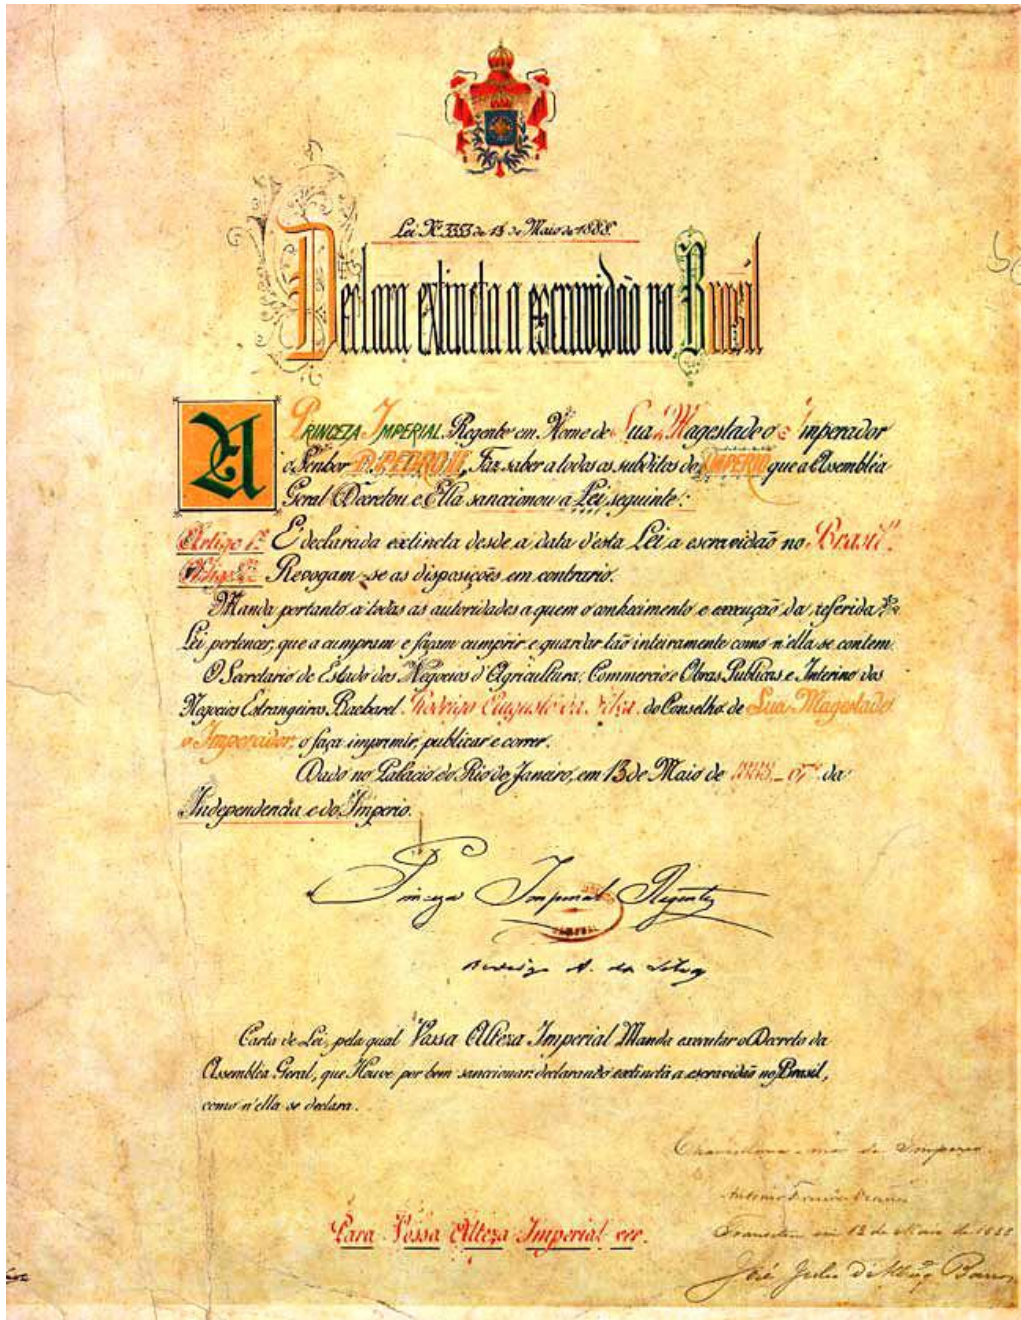 Lei Nº 3353 de 13 de Maio de 1888.
Declara extincta a escravidão no Brasil
A PRINCEZA IMPERIAL Regente em Nome de Sua Magestade o Imperador
o Senhor D. PEDRO II, Faz saber a todos os subditos do IMPERIO que a Assembléa
Geral Decretou e Ella sanccionou a Lei seguinte:
Artigo 1º É declarada extincta desde a data d'esta Lei a escravidão no Brasil.
Artigo 2º Revogam-se as disposições em contrario.
Manda portanto a todas as autoridades a quem o conhecimento e execução da referida
Lei pertencer, que a cumpram e façam cumprir e guardar tão inteiramente como n'ella se contem.
O Secretario de Estado dos Negocios d'Agricultura, Commercio e Obras Publicas e Interino dos
Negocios Estrangeiros, Bacharel Rodrigo Augusto da Silva, do Conselho de Sua Magestade
o Imperador, o faça imprimir, publicar e correr.
Dado no Palacio do Rio de Janeiro, em 13 de Maio de 1888 - 67º da
Independencia e do Imperio.
Princeza Imperial Regente
Rodrigo A. da Silva
Carta de Lei, pela qual Vossa Alteza Imperial Manda executar o Decreto da
Assembléa Geral, que Houve por bem sanccionar, declarando extincta a escravidão no Brasil,
como n'ella se declara.
Chancellaria-mór do Imperio.
Antonio Ferreira Vianna
Transitou em 13 de Maio de 1888
José Julio d'Albuqº Barros
Para Vossa Alteza Imperial ver.